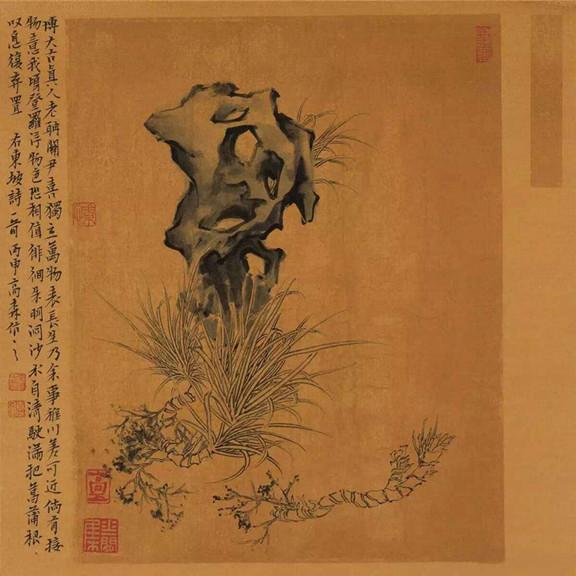 博大古真人老聃關尹喜獨立萬物表長生乃余事稚川差可近倘有接
物意我頃登羅浮物色恐相值徘徊朱明洞沙水自清駛滿把菖蒲根
叹息復弃置 右東坡詩一首 丙申高森